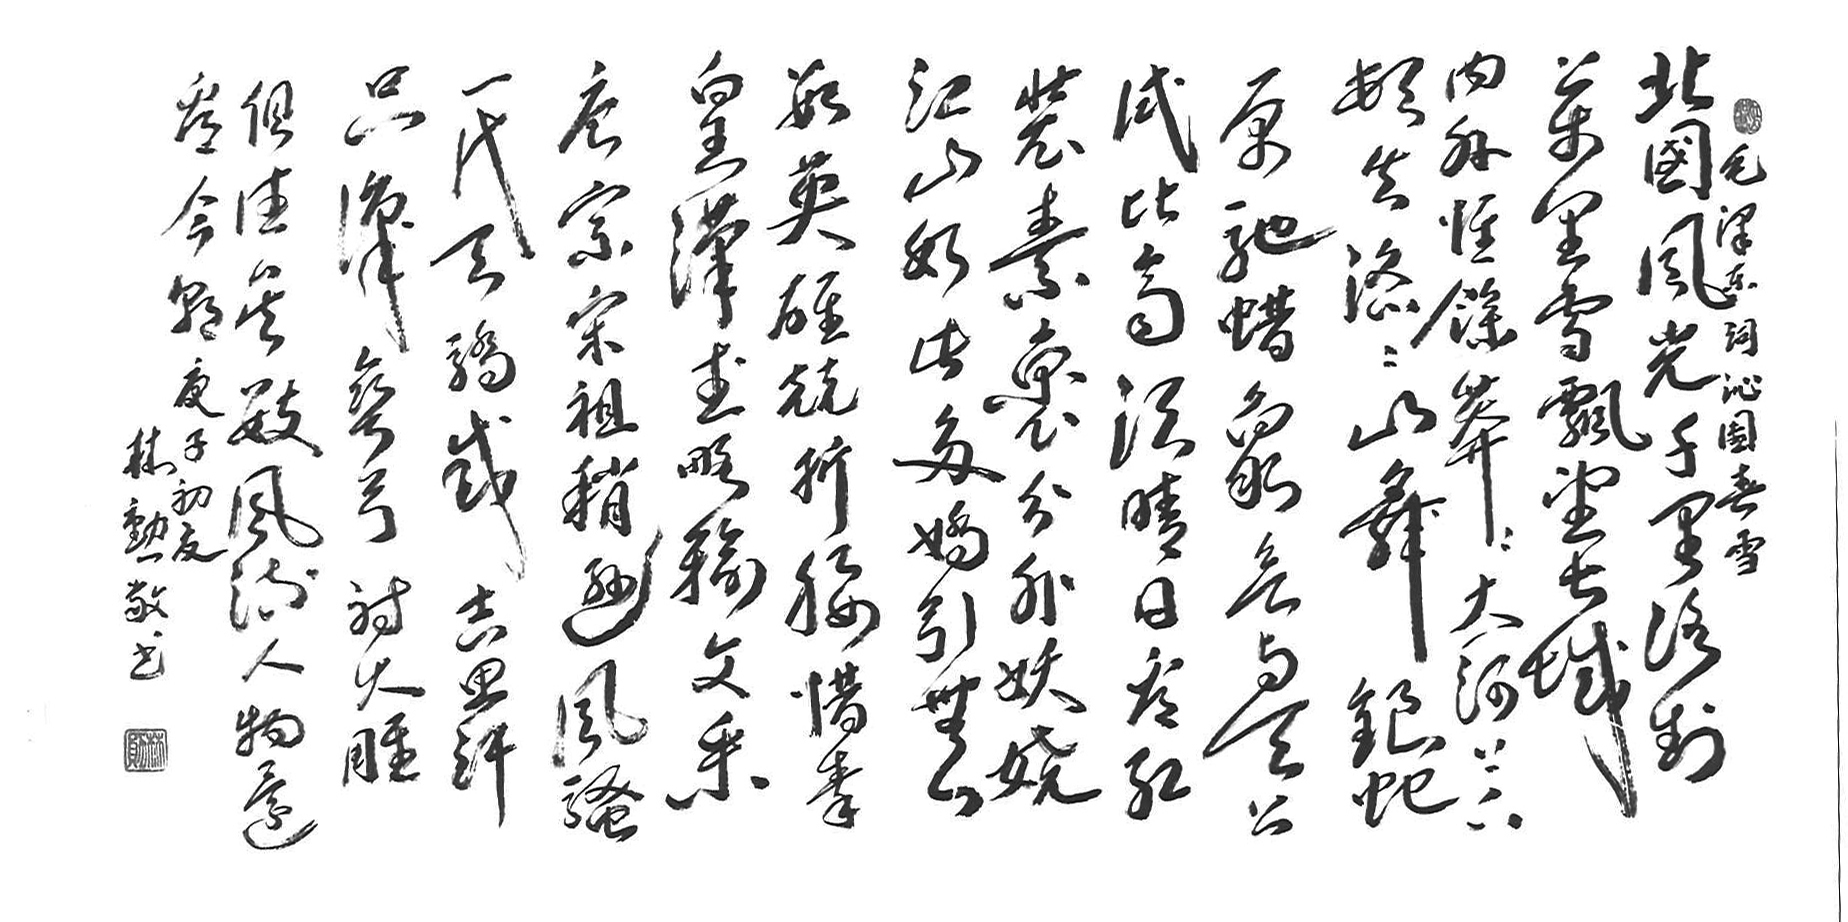 毛澤东詞沁園春雪
北國風光千里冰封
萬里雪飄望长城
内外惟餘莽莽大河上下
顿失滔滔山舞銀蛇
原馳蜡象欲与天公
试比高须晴日看红
装素裹分外妖娆
江山如此多嬌引無
数英雄競折腰惜秦
皇漢武略輸文采
唐宗宋祖稍遜風騷
一代天驕成吉思汗
只識彎弓射大雕
俱往矣數風流人物還
看今朝庚子初夏
林勳敬书